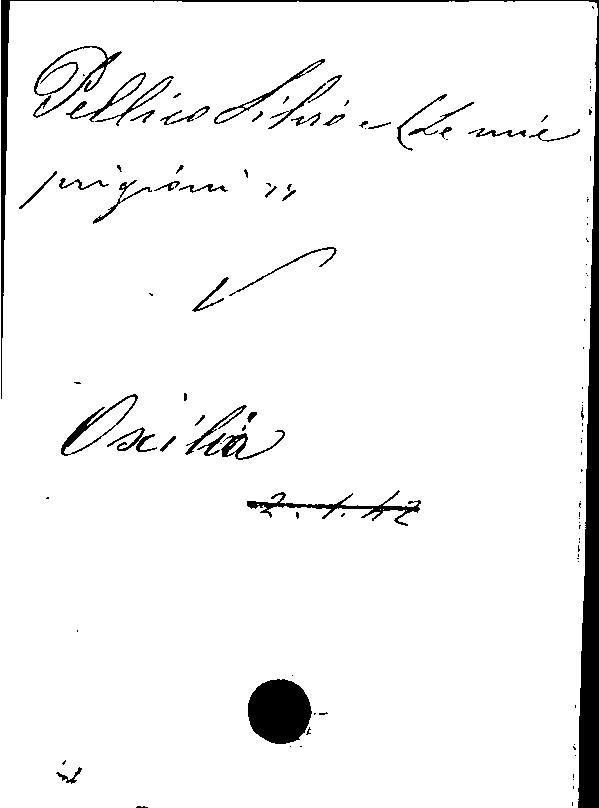 Pellico Silvio « Le mie
prigioni »
Oxilia
2.1.42